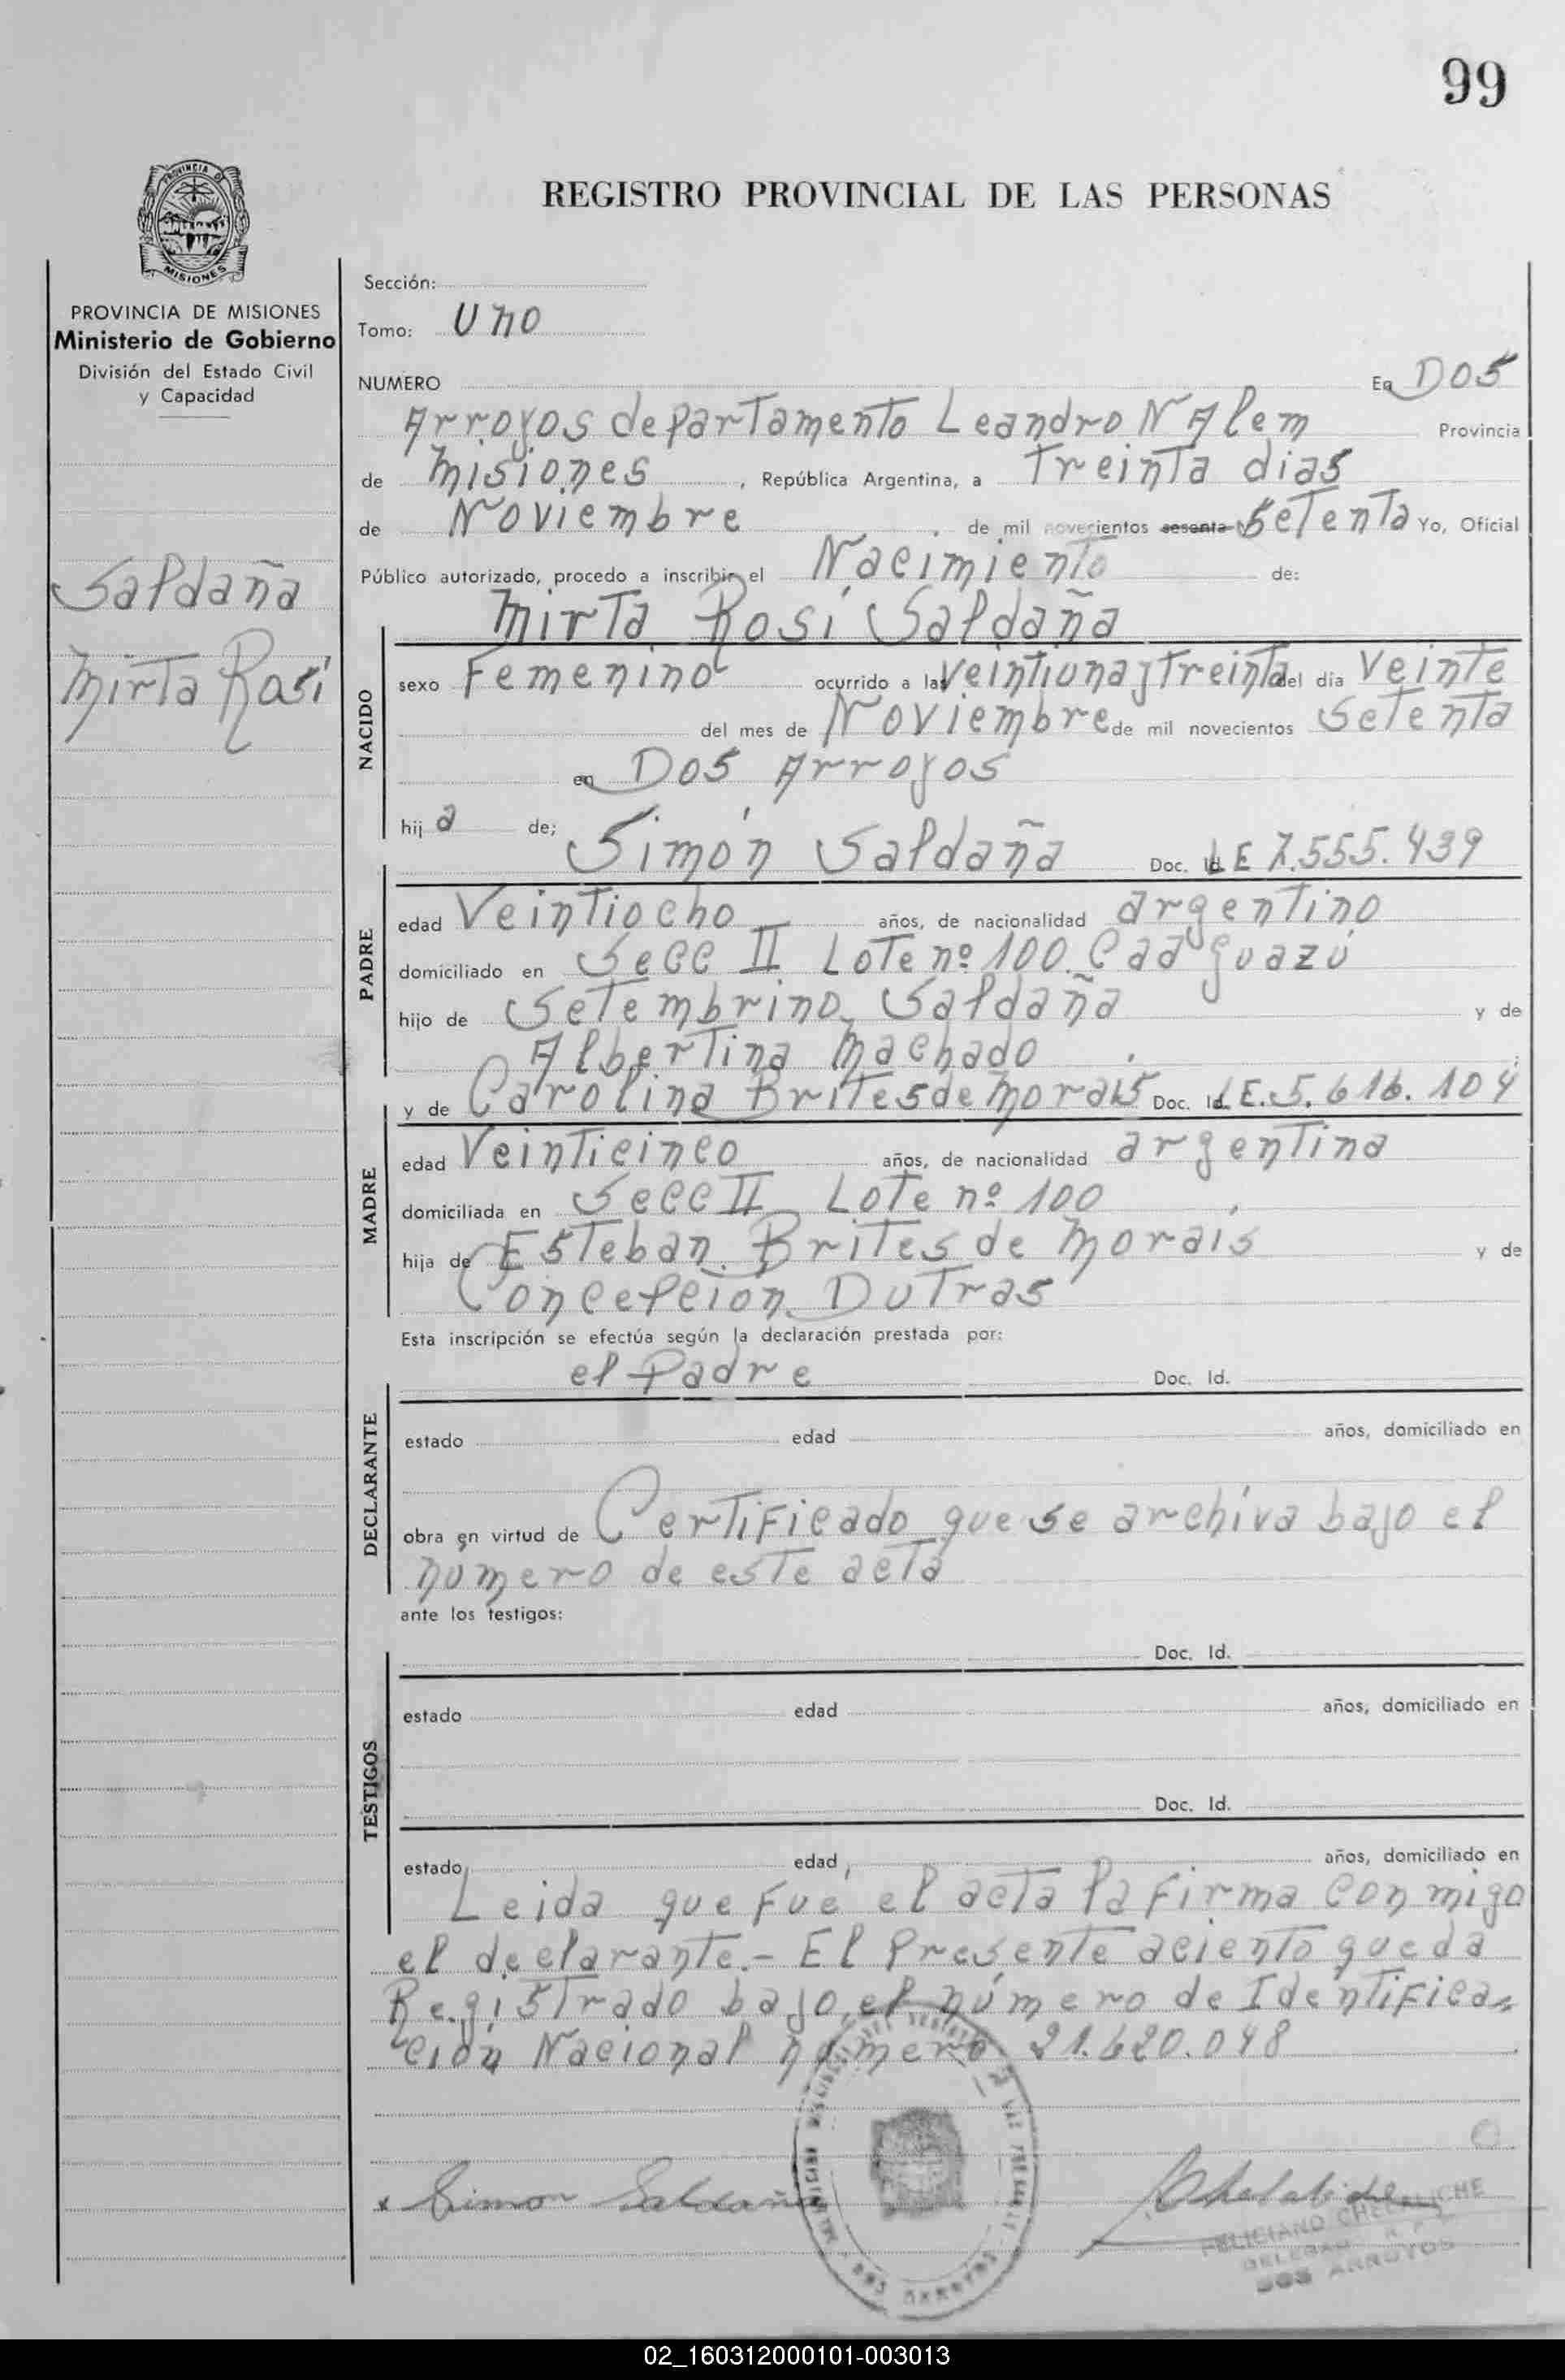 99
PROVINCIA DE
MISIONES
REGISTRO PROVINCIAL DE LAS PERSONAS
PROVINCIA DE MISIONES
Ministerio de Gobierno
División del Estado Civil
y Capacidad
Saldaña
Mirta Rosí
Sección:
Tomo: Uno
NUMERO En Dos
Arroyos departamento Leandro N Alem Provincia
de Misiones, República Argentina, a Treinta dias
de Noviembre de mil novecientos sesenta Setenta Yo, Oficial
Público autorizado, procedo a inscribir el Nacimiento de:
Mirta Rosí Saldaña
NACIDO
sexo Femenino ocurrido a las Veintiuna y Treinta del día Veinte
del mes de Noviembre de mil novecientos Setenta
en Dos Arroyos
hija de; Simón Saldaña Doc. Id. LE 7.555.439
PADRE
edad Veintiocho años, de nacionalidad argentino
domiciliado en Secc II Lote nº 100 Caa Guazú
hijo de Setembrino Saldaña y de
Albertina Machado
y de Carolina Brites de Morais Doc. Id. LE. 5.616.104
MADRE
edad Veinticinco años, de nacionalidad argentina
domiciliada en Secc II Lote nº 100
hija de Esteban Brites de Morais y de
Concepcion Dutras
Esta inscripción se efectúa según la declaración prestada por:
el Padre Doc. Id.
DECLARANTE
estado edad años, domiciliado en
obra en virtud de Certificado que se archiva bajo el
número de este acta
ante los testigos:
Doc. Id.
TESTIGOS
estado edad años, domiciliado en
Doc. Id.
estado edad años, domiciliado en
Leida que fue el acta la firma conmigo
el declarante.- El Presente aciento queda
Registrado bajo el número de Identifica=
ción Nacional número 21.620.048
x Simon Saldaña
FELICIANO
DOS ARROYOS
DOS ARROYOS
02_160312000101-003013